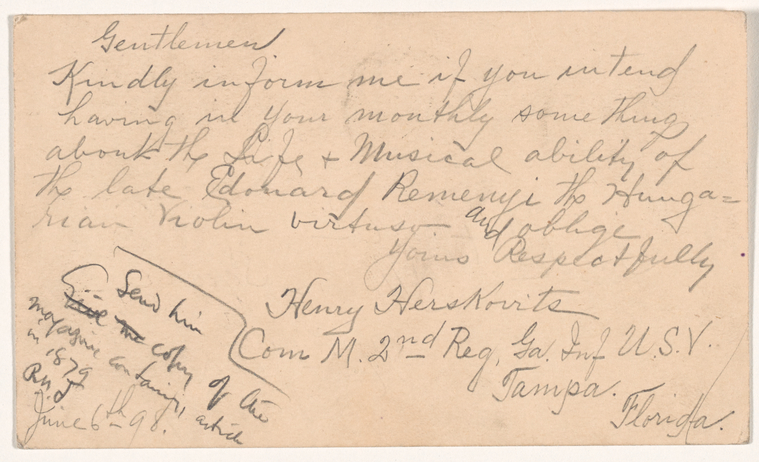 Gentlemen
Kindly inform me if you intend
having in your monthly something
about the Life & Musical ability of
the late Edouard Remenyi the Hunga=
rian Violin virtuso and oblige
Yours Respectfully
Henry Herskovits
Com M. 2nd Reg, Ga. Inf U.S.V.
Tampa.
Florida.
Send him
copy of the
magazine containing article
in 1879
June 6th 98.